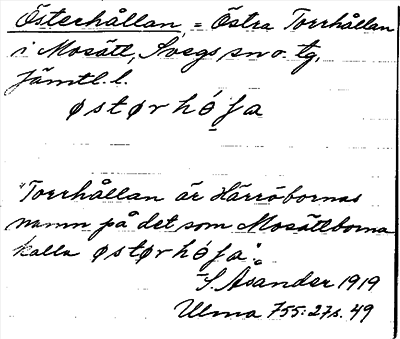 Österhållan, = Östra Torrhållan
i Mosätt, Svegs sn o. tg,
Jämtl. l.
østørhó̠fa
"Torrhållan är Härröbornas
namn på det som Mosättborna
kalla østørhó̠fa".
S. Asander 1919
Ulma 755:27 s. 49